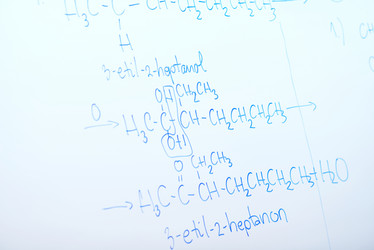 H₃C-C-CH-CH₂CH₂CH₂CH₃
H
3-etil-2-heptanol
OH CH₂CH₃
O → H₃C-C-CH-CH₂CH₂CH₂CH₃ →
OH
O CH₂CH₃
→ H₃C-C-CH-CH₂CH₂CH₂CH₃+H₂O
3-etil-2-heptanon
1)